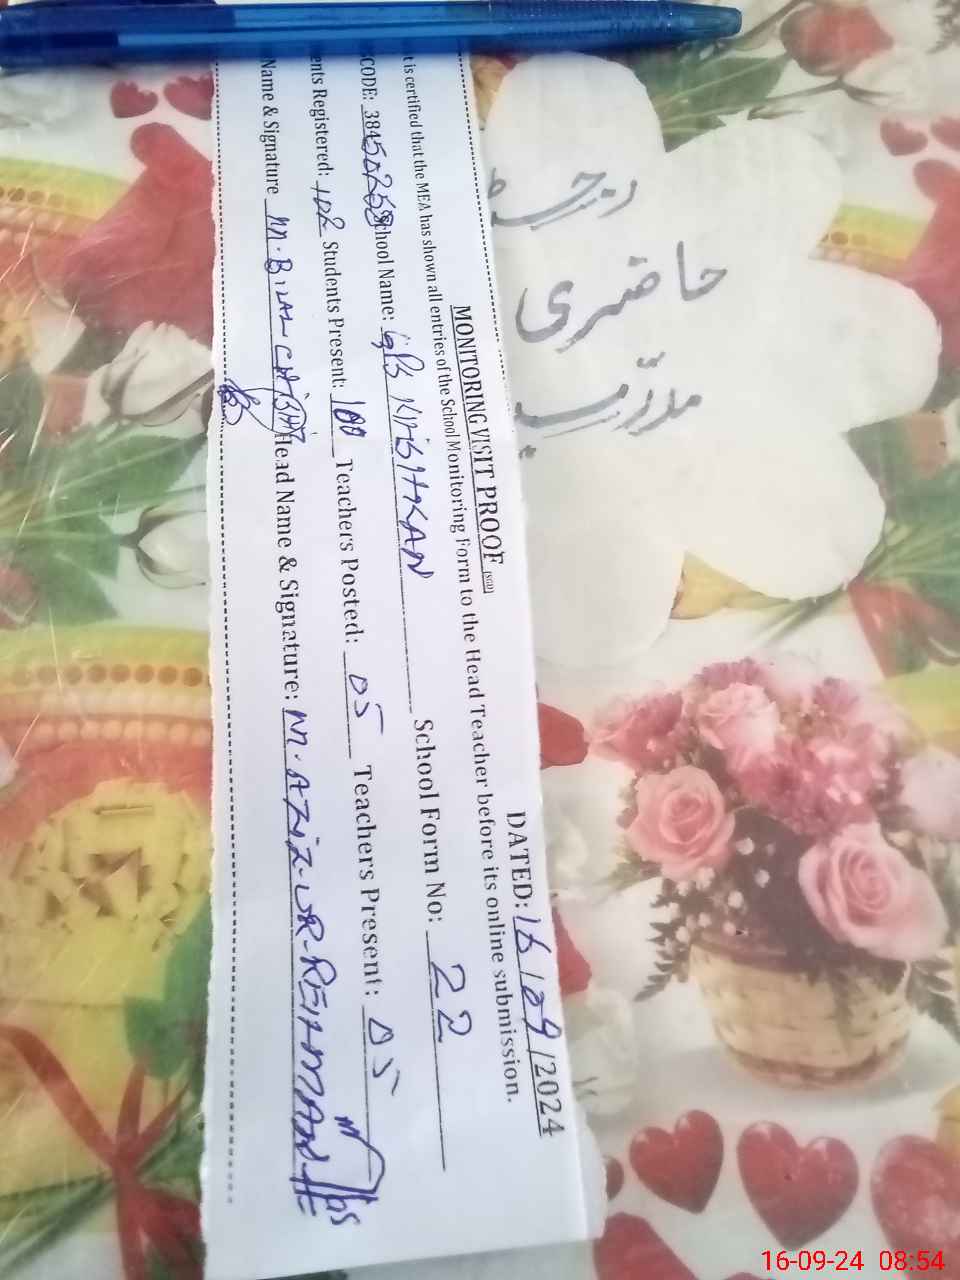 MONITORING VISIT PROOF (SGD)
DATED: 16/09/2024
t is certified that the MEA has shown all entries of the School Monitoring Form to the Head Teacher before its online submission.
CODE: School Name: School Form No: 22
ents Registered: 102 Students Present: 100 Teachers Posted: 05 Teachers Present: 05
Name & Signature M. BILAL Head Name & Signature: M. AZIZ-UR-REHMAN
حاضری
16-09-24 08:54